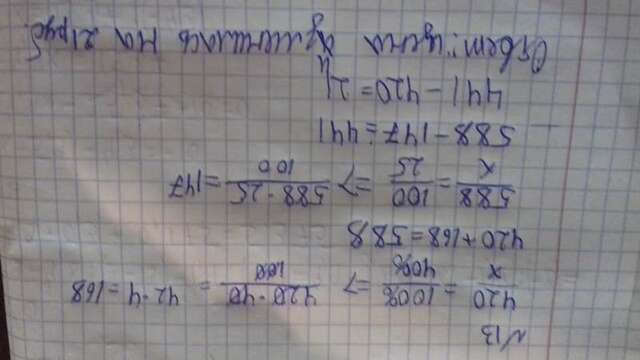 №13
420/x = 100%/40% => 420·40/100 = 42·4=168
420+168=588
588/x = 100/25 => 588·25/100 = 147
588-147=441
441-420=21
Ответ: цена изменилась на 21руб.